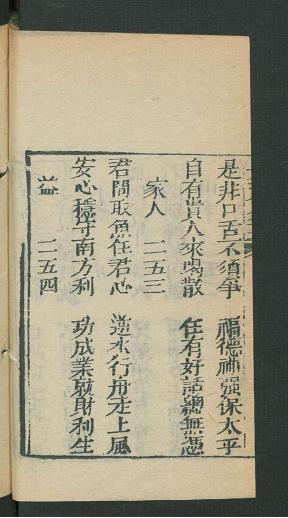 是非口舌不須爭 福德神强保太平
自有貴人來喝散 任有好話總無憑
家人 二五三
君問取魚任君心 逆水行舟走上風
安心穩守南方利 功成業就財利生
益 二五四